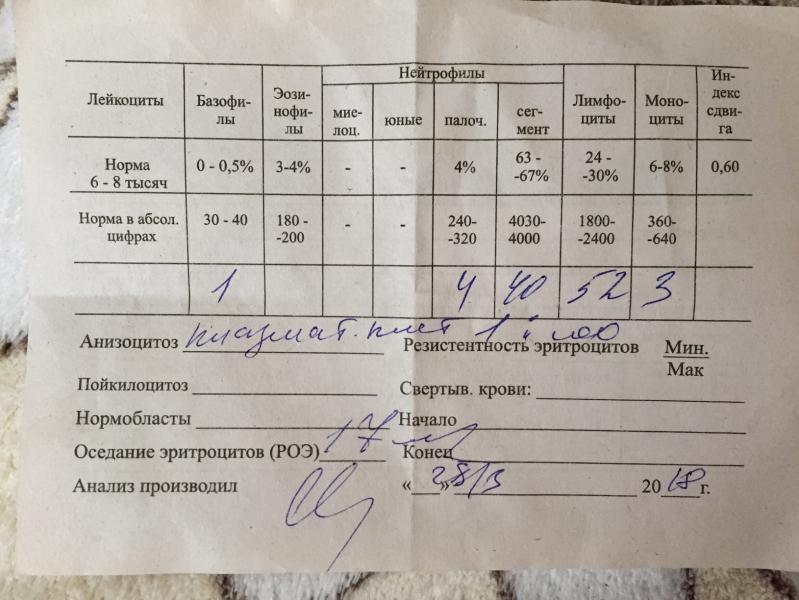 Нейтрофилы
Лейкоциты Базофи- лы Эози- нофи- лы мие- лоц. юные палоч. сег- мент Лимфо- циты Моно- циты Ин- декс сдви- га
Норма 6 - 8 тысяч 0 - 0,5% 3-4% - - 4% 63 - -67% 24 - -30% 6-8% 0,60
Норма в абсол. цифрах 30 - 40 180 - -200 - - 240- -320 4030- 4000 1800- -2400 360- -640
1 4 40 52 3
Анизоцитоз плазмат. клет 1 : 100 Резистентность эритроцитов Мин.
Мак
Пойкилоцитоз Свертыв. крови:
Нормобласты Начало
Оседание эритроцитов (РОЭ) 17 Конец
Анализ производил « » 28/3 2018 г.